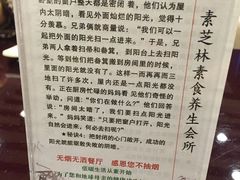 卧室的窗户整天都是密闭着，他们认为屋
内太阴暗，看见外面灿烂的阳光，觉得十
分羡慕。兄弟俩就商量说："我们可以一起
把外面的阳光扫一点进来。"于是，兄弟
两人拿着扫帚和畚箕，到阳台上去扫阳
光。等到他们把畚箕搬到房间里的时候，
里面的阳光就没有了。这样一而再再而三
地扫了许多次，屋内还是一点阳光都没
有。正在厨房忙碌的妈妈看见他们奇怪的
举动，问道："你们在做什么？"他们回答
说："房间太暗了，我们要扫点阳光进来。"
妈妈笑道："只要把窗户打开，阳光
自然会进来，何必去扫呢？"
★秘诀4：把封闭的心门敞开，成功的
阳光就能驱散失败的阴暗。
无烟无酒餐厅 感恩您不抽烟
低碳生活从素开始
为了您和地球母亲的健康请
素芝林素食养生会所